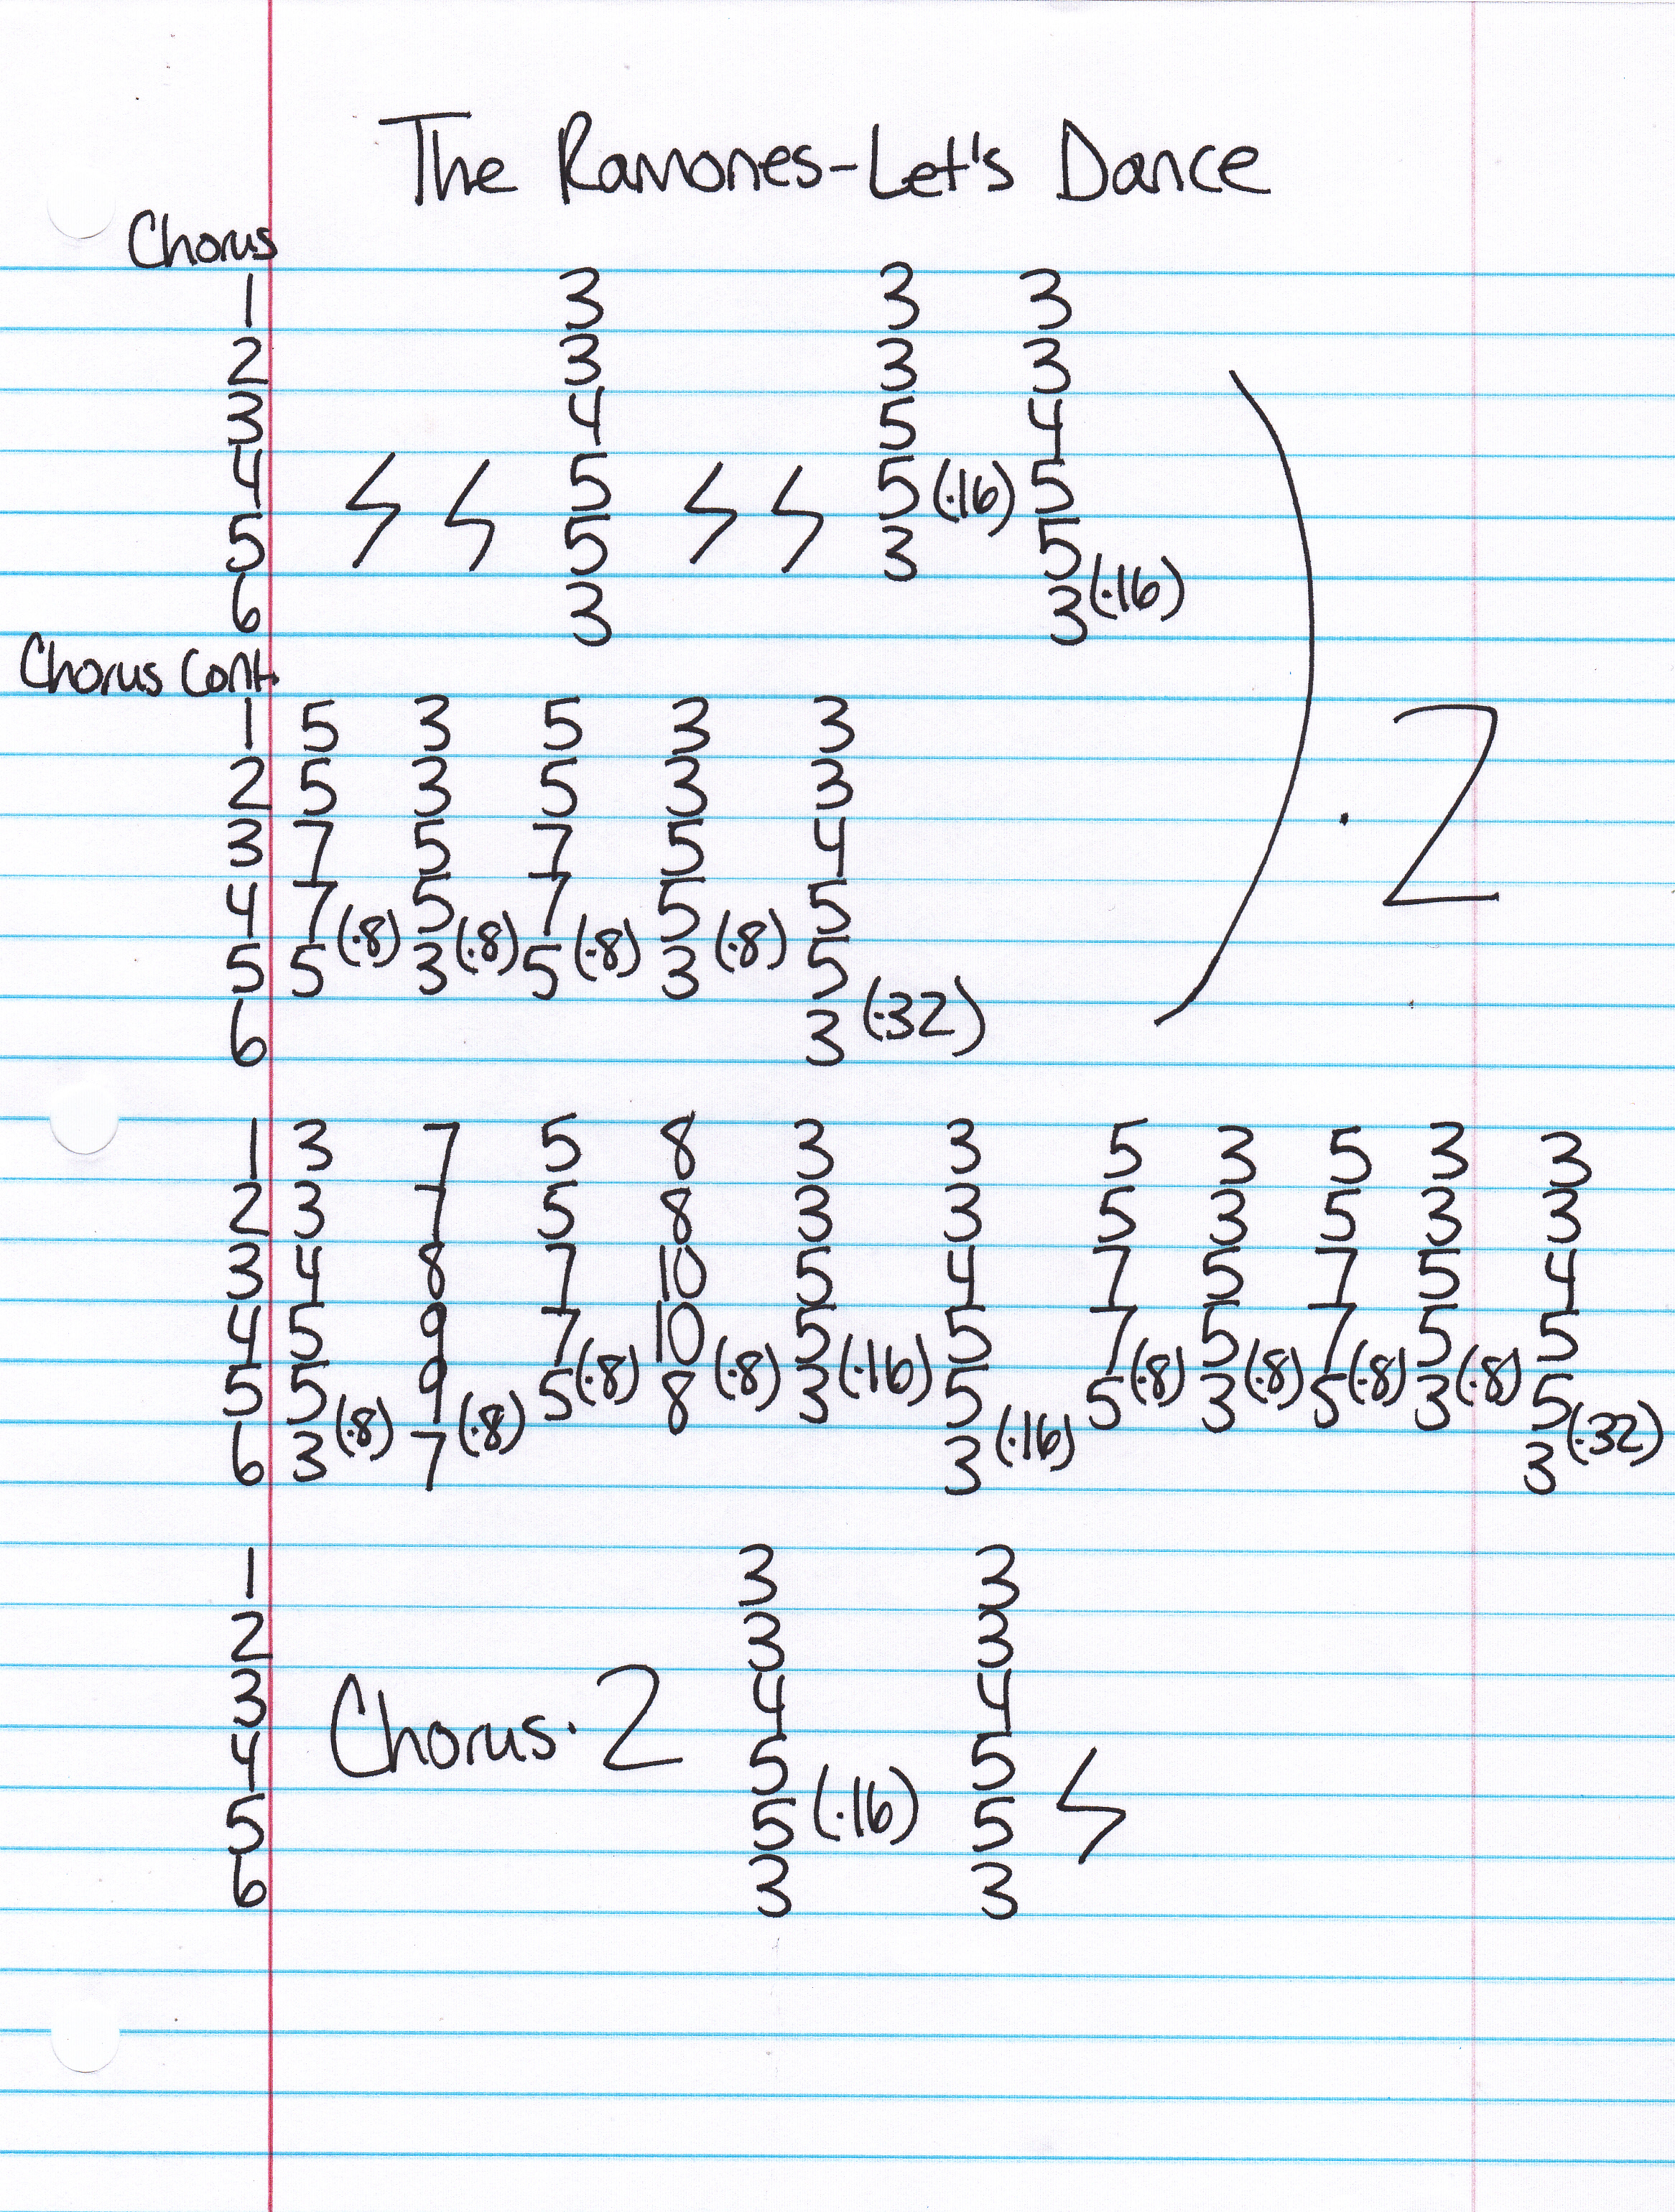 The Ramones-Let's Dance
Chorus
1 3 3 3
2 3 3 3
3 4 5 4
4 5 5 (·16) 5
5 5 3 5
6 3 3 (·16)
Chorus Cont.
1 5 3 5 3 3
2 5 3 5 3 3
3 7 5 7 5 4
4 7 5 7 5 5
5 5 (·8) 3 (·8) 5 (·8) 3 (·8) 5
6 3 (·32)
· 2
1 3 7 5 8 3 3 5 3 5 3 3
2 3 7 5 8 3 3 5 3 5 3 3
3 4 8 7 10 5 4 7 5 7 5 4
4 5 9 7 10 5 5 7 5 7 5 5
5 5 9 5 (·8) 8 (·8) 3 (·16) 5 5 (·8) 3 (·8) 5 (·8) 3 (·8) 5
6 3 (·8) 7 (·8) 3 (·16) 3 (·32)
1 3 3
2 3 3
3 4 4
Chorus · 2
4 5 5
5 5 (·16) 5
6 3 3